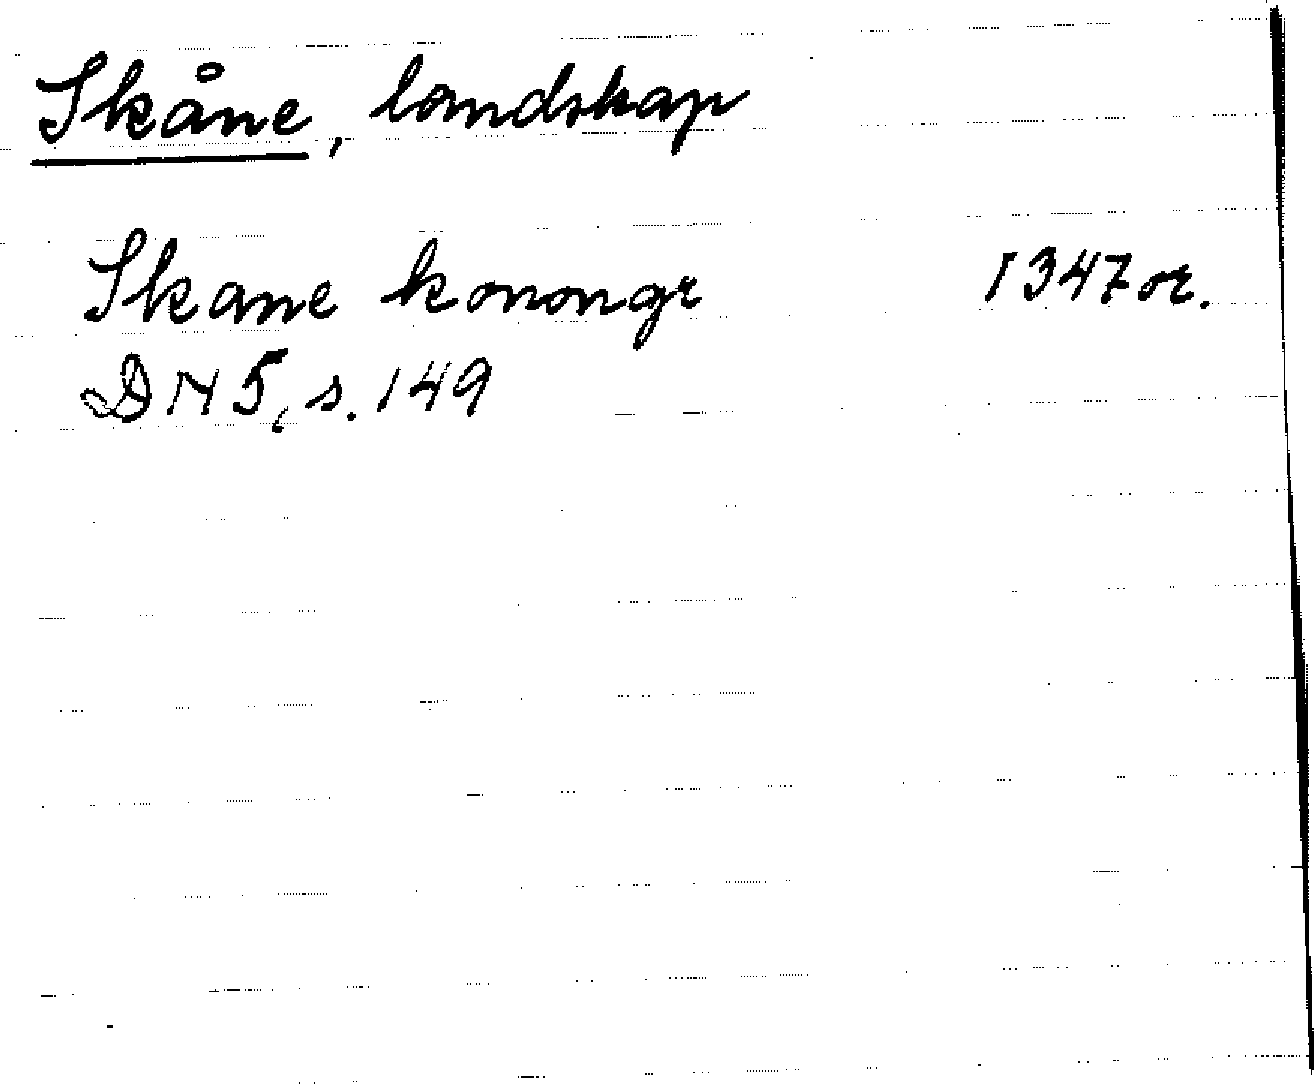 Skåne, landskap
Skane konongr 1347 or.
DN 5, s. 149